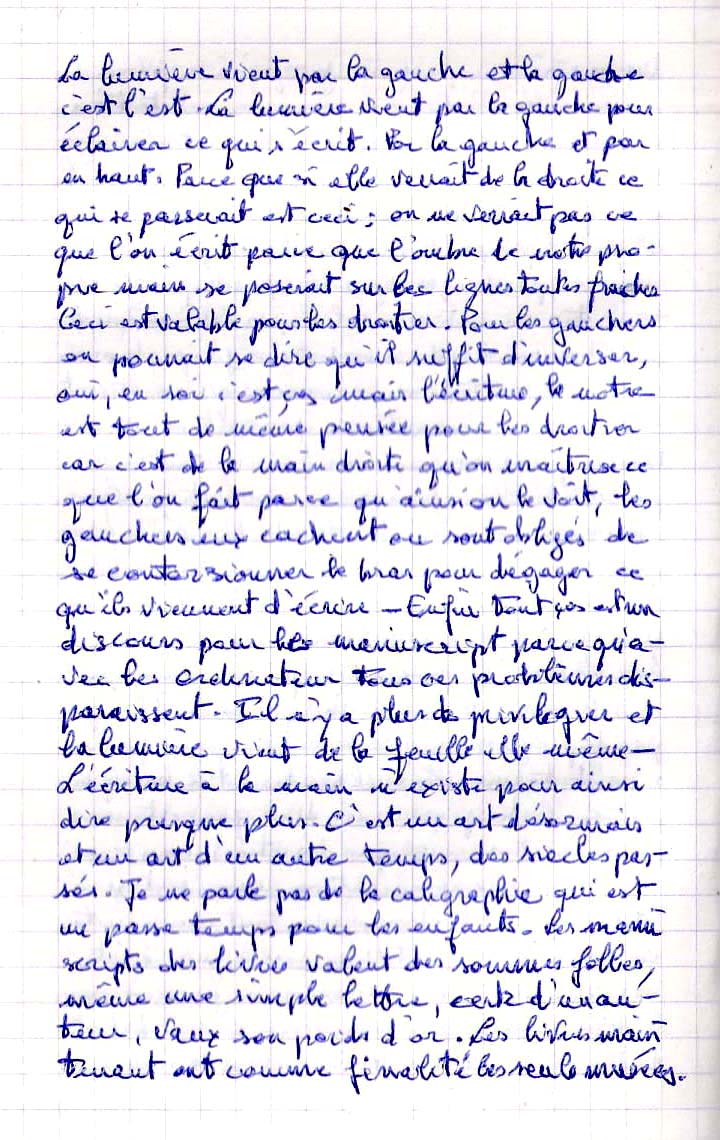 La lumière vient par la gauche et la gauche
c'est l'est. La lumière vient par la gauche pour
éclairer ce qui s'écrit. Par la gauche et par
en haut. Parce que si elle venait de la droite ce
qui se passerait est ceci : on ne verrait pas ce
que l'on écrit parce que l'ombre de notre pro-
pre main se poserait sur les lignes toutes fraiches
Ceci est valable pour les droitier. Pour les gauchers
on pourrait se dire qu'il suffit d'inverser,
oui, en soi c'est ça mais l'écriture, la notre
est tout de même pensée pour les droitier
car c'est de la main droite qu'on maîtrise ce
que l'on fait parce qu'ainsi on le voit, les
gauchers eux cachent ou sont obligés de
se contorsionner le bras pour dégager ce
qu'ils viennent d'écrire - Enfin tout ça est un
discours pour les manuscript parce qu'a-
vec les ordinateur tous ces problèmes dis-
paraissent. Il n'y a plus de privilegier et
la lumière vient de la feuille elle même -
L'écriture à la main n'existe pour ainsi
dire presque plus. C'est un art désormais
et un art d'un autre temps, des siecles pas-
sés. Je ne parle pas de la caligraphie qui est
un passe temps pour les enfants. Les manu
scripts des livres valent des sommes folles,
même une simple lettre, écrite d'un au-
teur, vaux son poids d'or. Les livres main
tenant ont comme finalité les seuls musées.